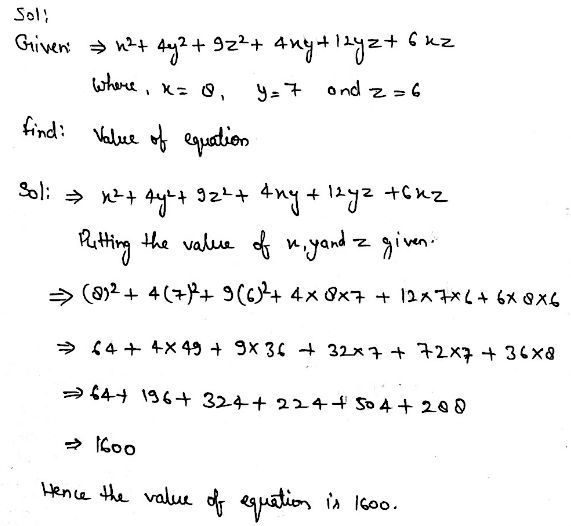 Sol:
Given: ⇒ x²+ 4y² + 9z²+ 4xy+12yz+ 6xz
where, x= 8, y=7 and z=6
find: Value of equation
Sol: ⇒ x²+ 4y²+ 9z²+ 4xy + 12yz +6xz
Putting the value of x,y and z given.
⇒ (8)² + 4(7)²+ 9(6)²+ 4×8×7 + 12×7×6+ 6×8×6
⇒ 64 + 4×49 + 9×36 + 32×7 + 72×7 + 36×8
⇒ 64+ 196+ 324+ 224+ 504+ 288
⇒ 1600
Hence the value of equation is 1600.